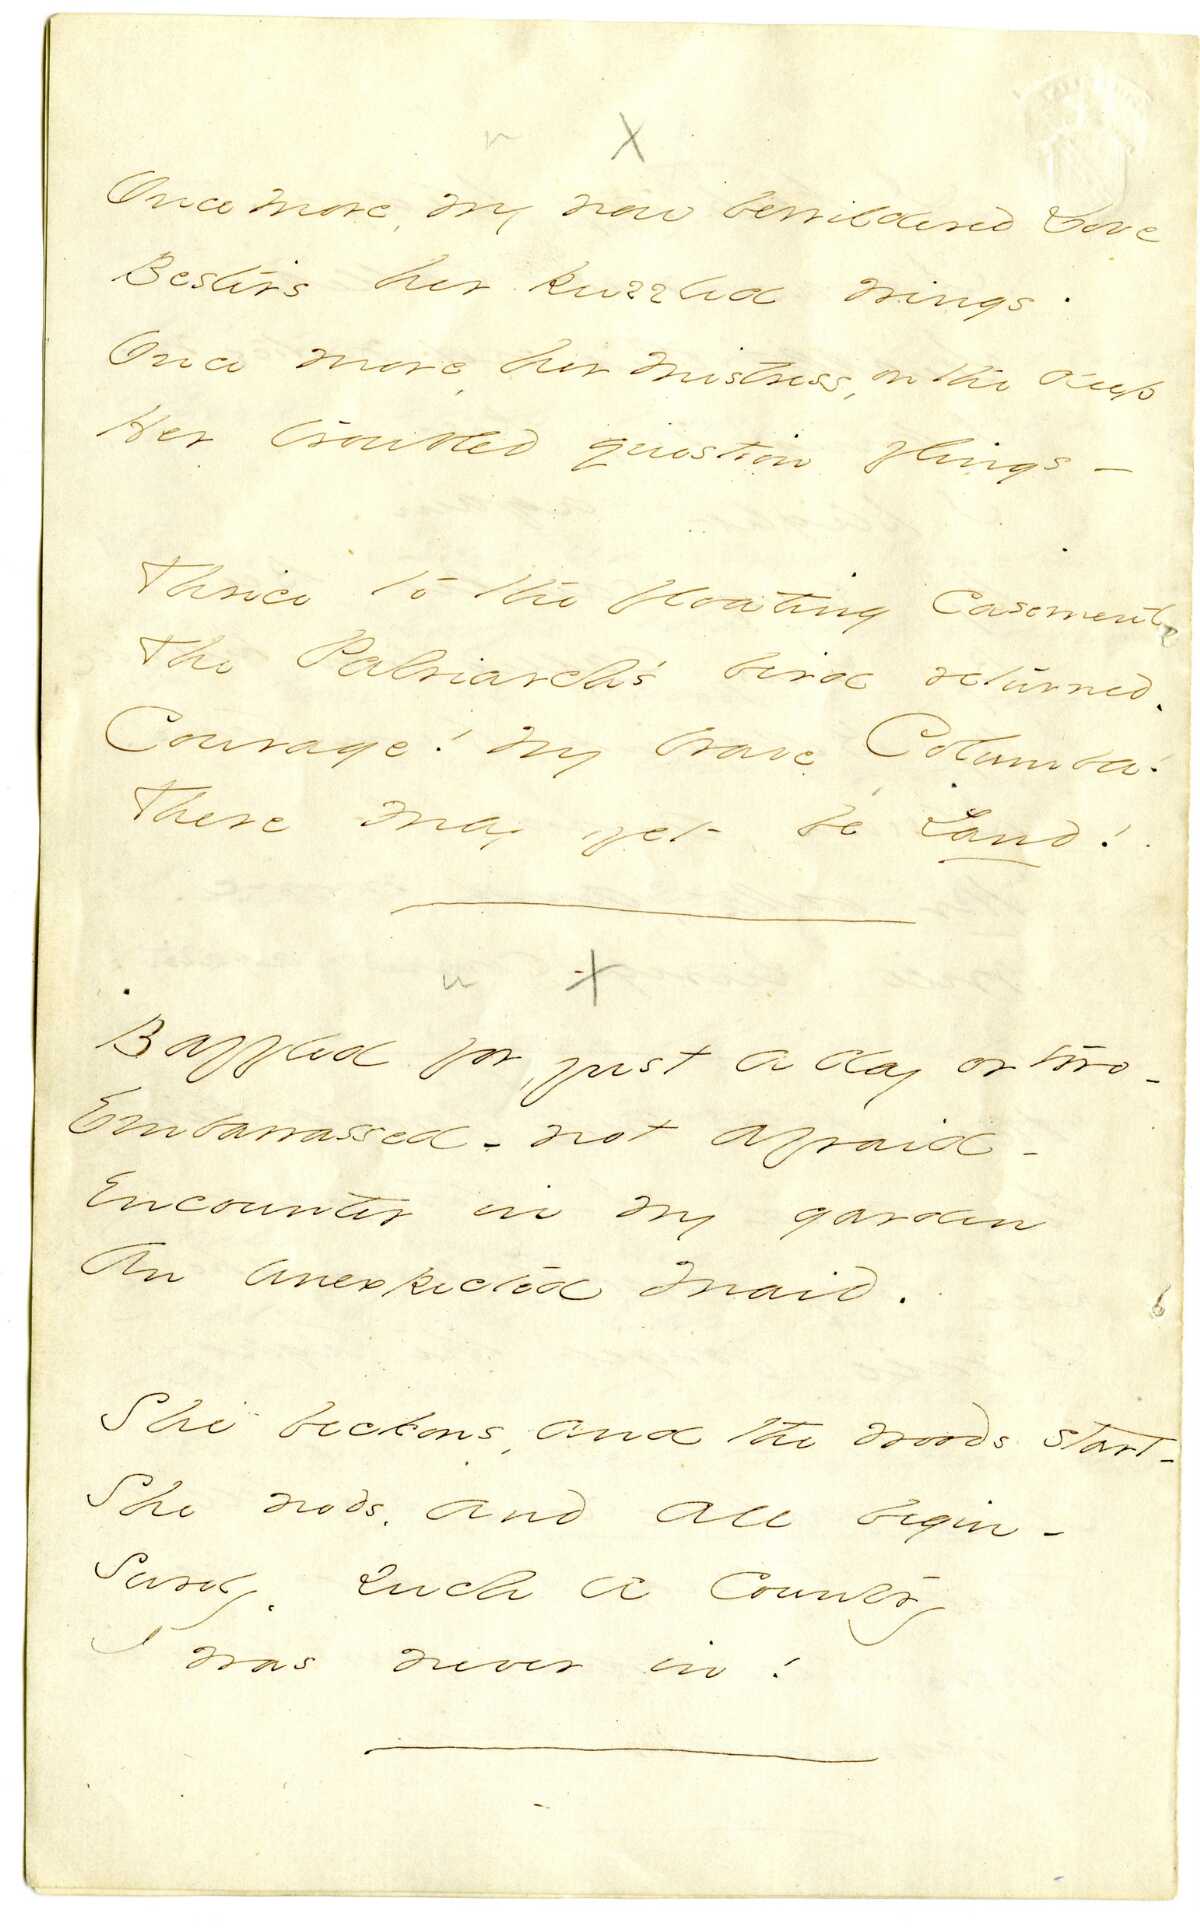 X
Once more, my now bewildered Dove
Bestirs her puzzled wings.
Once more, her mistress, on the deep
Her troubled question flings –
Thrice to the floating casement
The Patriarch's bird returned.
Courage! My brave Columba!
There may yet be Land!
X
Baffled for just a day or two –
Embarrassed – not afraid –
Encounter in my garden
An unexpected Maid.
She beckons, and the woods start –
She nods, and all begin –
Surely, such a country
I was never in!